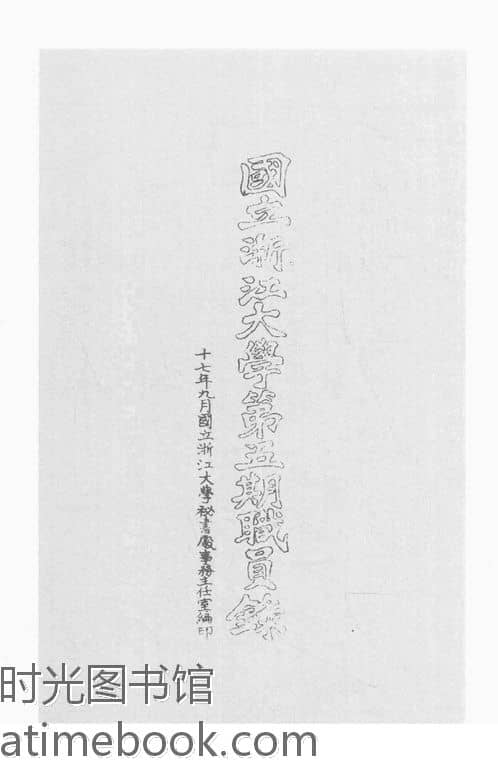 國立浙江大學第五期職員錄
十七年九月國立浙江大學秘書處事務主任室編印
时光图书馆
atimebook.com